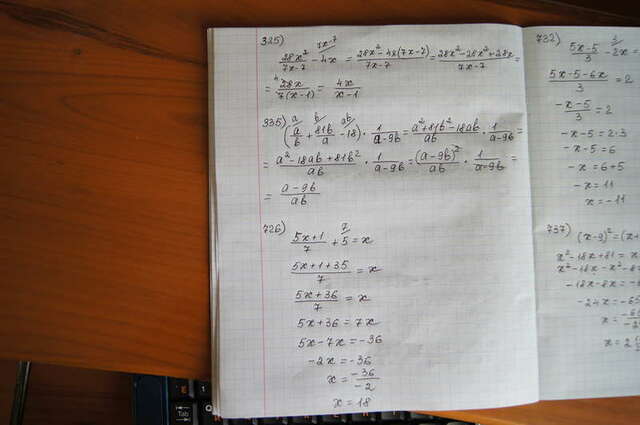 325)
7x-7
28x²/7x-7 - 4x = 28x²-4x(7x-7)/7x-7 = 28x²-28x²+28x/7x-7 =
= 4 28x/7(x-1) = 4x/x-1
335) a b ab
(a/b + 81b/a - 18) · 1/a-9b = a²+81b²-18ab/ab · 1/a-9b =
= a²-18ab+81b²/ab · 1/a-9b = (a-9b)²/ab · 1/a-9b =
= a-9b/ab
726) 7
5x+1/7 + 5 = x
5x+1+35/7 = x
5x+36/7 = x
5x+36 = 7x
5x-7x = -36
-2x = -36
x = -36/-2
x = 18
732) 3
5x-5/3 - 2x =
5x-5-6x/3 = 2
-x-5/3 = 2
-x-5 = 2·3
-x-5 = 6
-x = 6+5
-x = 11
x = -11
737)
(x-9)² = (x+
x²-18x+81 = x
x²-18x-x²-8
-18x-8x = -
-24x = -6
x = -6
x = 2
Tab